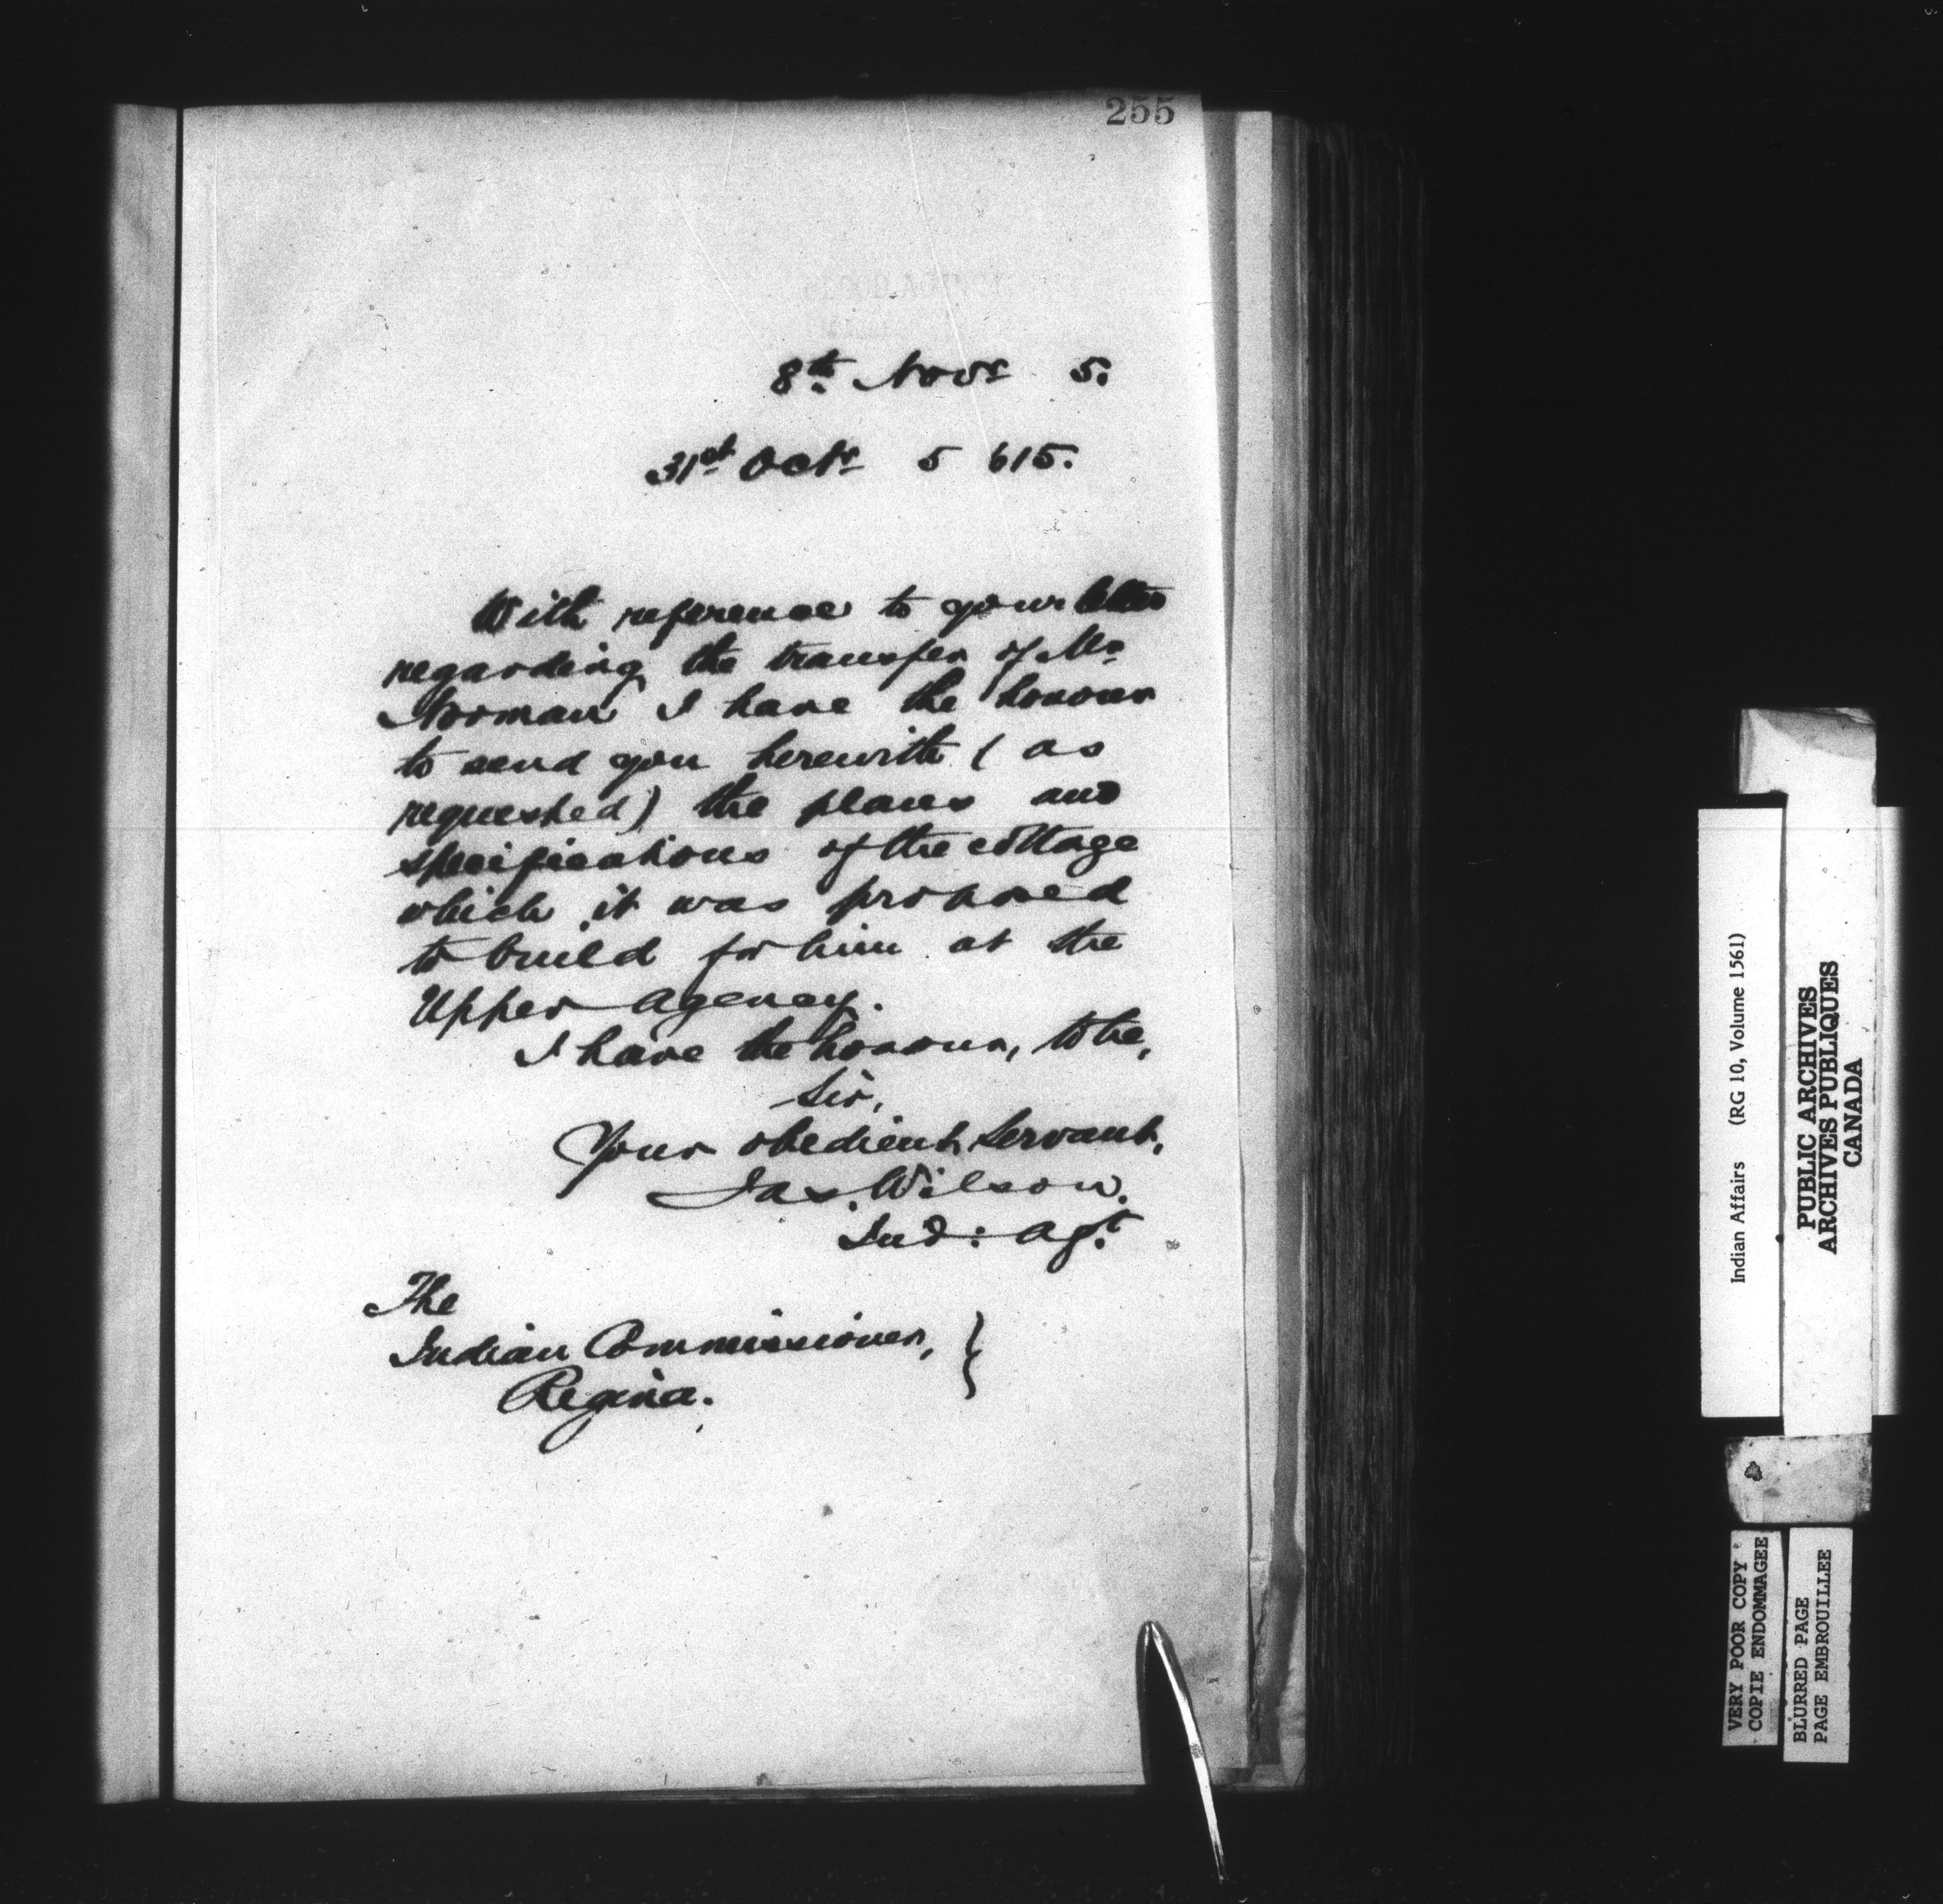 255
8th Novr 5.
31st Octr 5 615.
With reference to your letter
regarding the transfer of Mr
Norman I have the honour
to send you herewith (as
requested) the plans and
specifications of the cottage
which it was proposed
to build for him at the
Upper Agency.
I have the honour, to be,
Sir,
Your obedient Servant,
Jas. Wilson.
Ind: Agt.
The
Indian Commissioner, }
Regina.
Indian Affairs (RG 10, Volume 1561)
PUBLIC ARCHIVES
ARCHIVES PUBLIQUES
CANADA
VERY POOR COPY
COPIE ENDOMMAGEE
BLURRED PAGE
PAGE EMBROUILLEE